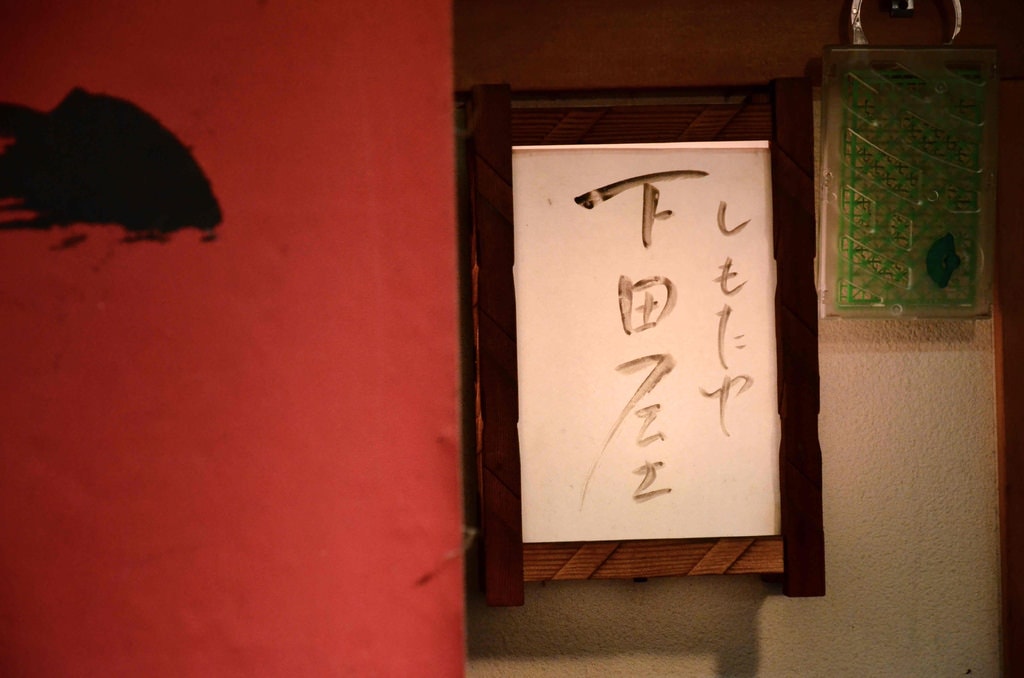 しもたや
下田屋